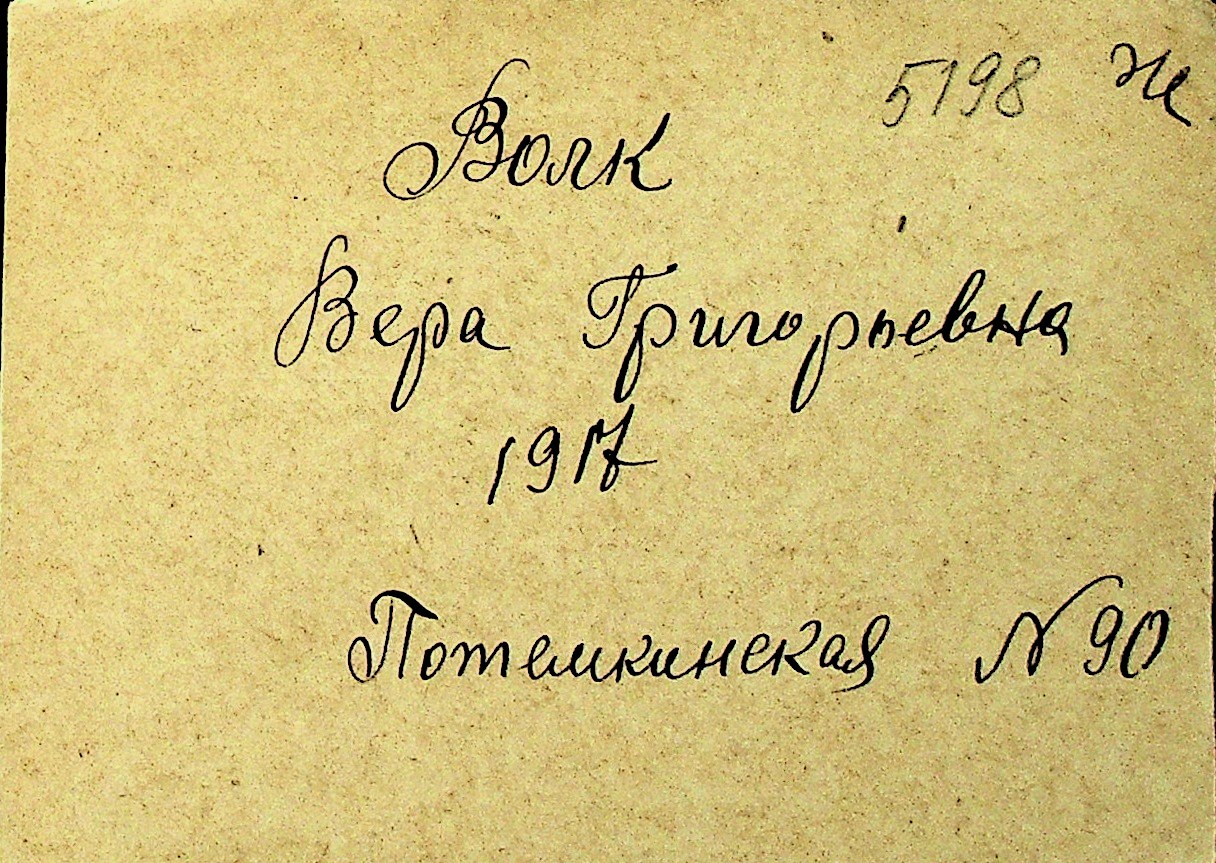 5198 Же
Волк
Вера Григорьевна
1917
Потемкинская N 90